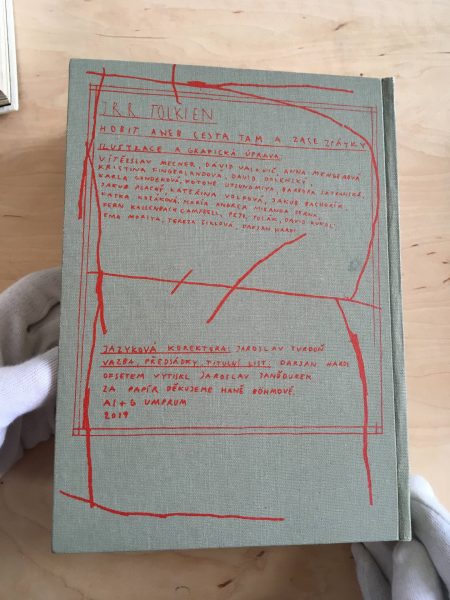 J.R.R. TOLKIEN
HOBIT ANEB CESTA TAM A ZASE ZPÁTKY
ILUSTRACE A GRAFICKÁ ÚPRAVA:
VÍTĚZSLAV MECNER, DAVID VALKOVIČ, ANNA MENGEROVÁ
KRISTINA FINGERLANDOVÁ, DAVID DOLENSKÝ
KARLA GONDEKOVÁ, MOTONE UTSUNOMIYA, BARBORA SATRANSKÁ,
JAKUB PLACHÝ, KATEŘINA VOLFOVÁ, JAKUB BACHORÍK,
KATKA KOZÁKOVÁ, MARÍA ANDREA MIRANDA SERNA,
FERN KALLENBACH CAMPBELL, PETR POLÁK, DAVID KUKOL,
EMA MORITA, TEREZA ŠIKLOVÁ, DARJAN HARDI
JAZYKOVÁ KOREKTURA: JAROSLAV TVRDOŇ
VAZBA, PŘEDSÁDKY, TITULNÍ LIST: DARJAN HARDI
OFSETEM VYTISKL JAROSLAV JANĚDUREK
ZA PAPÍR DĚKUJEME HANĚ BÖHMOVÉ.
AI+G UMPRUM
2019